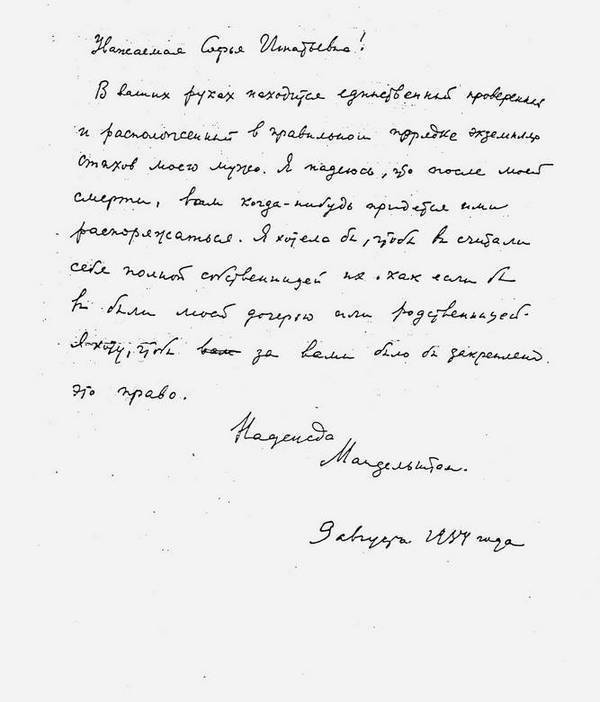 Уважаемая Софья Игнатьевна!
В ваших руках находится единственный проверенный
и расположенный в правильном порядке экземпляр
стихов моего мужа. Я надеюсь, что после моей
смерти, вам когда-нибудь придется ими
распоряжаться. Я хотела бы, чтобы вы считали
себя полной собственницей их, как если бы
вы были моей дочерью или родственницей.
Я хочу, чтобы за вами было бы закреплено
это право.
Надежда
Мандельштам.
9 августа 1954 года